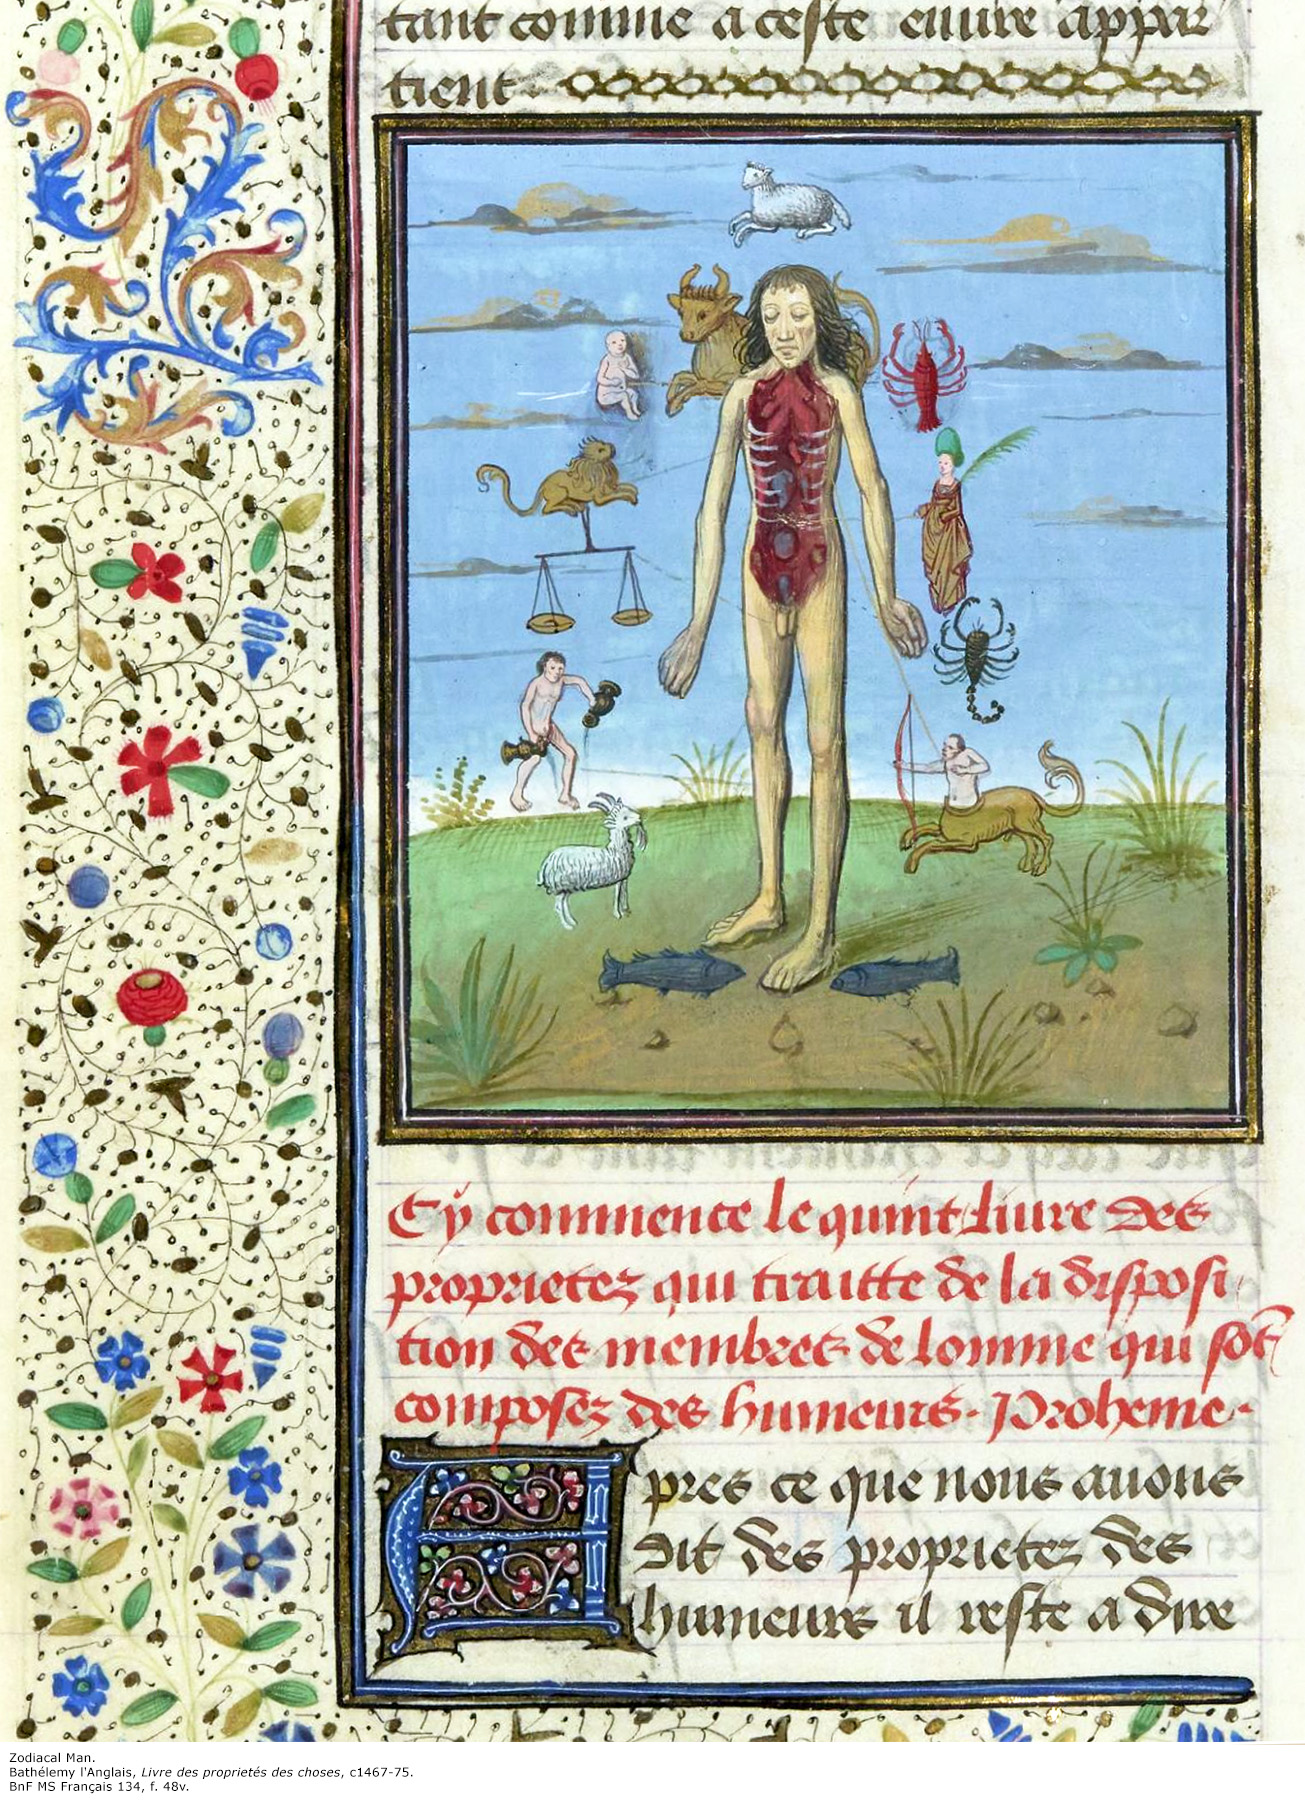 tant comme a ceste euure appar
tient
Cy commence le quint liure des
proprietez qui traitte de la disposi
tion des membres de lomme qui sōt
composez des humeurs. Proheme.
Apres ce que nous auons
dit des proprietez des
humeurs il reste a dire
Zodiacal Man.
Bathélemy l'Anglais, Livre des proprietés des choses, c1467-75.
BnF MS Français 134, f. 48v.